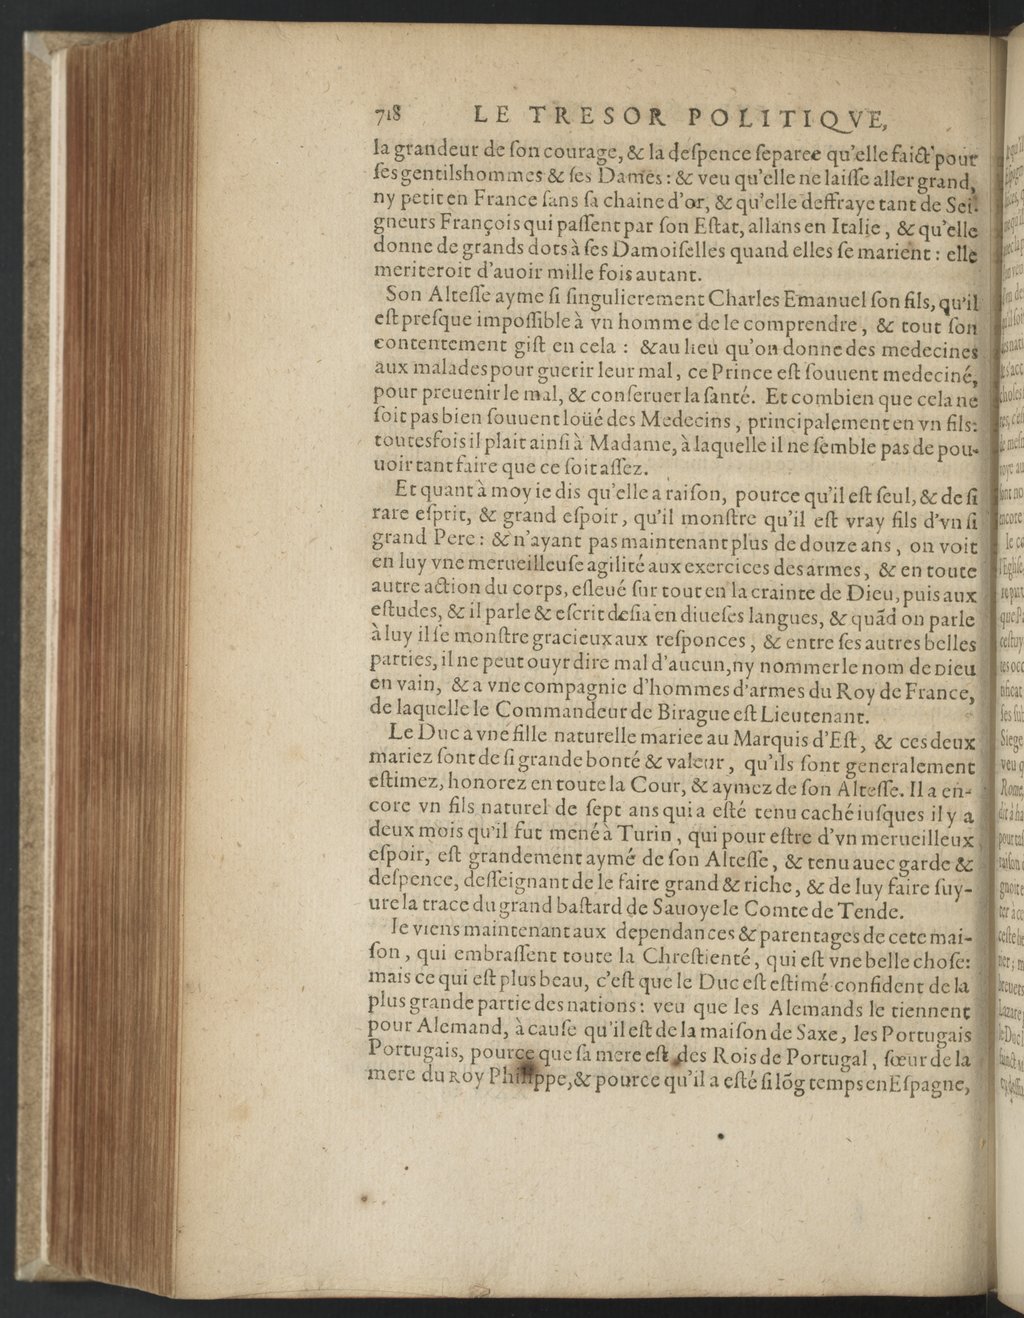 718 LE TRESOR POLITIQVE,
la grandeur de ſon courage, & la deſpence ſeparee qu'elle faict pour
ſes gentilshommes & ſes Dames : & veu qu'elle ne laiſſe aller grand,
ny petit en France ſans ſa chaine d'or, & qu'elle deffraye tant de Sei-
gneurs François qui paſſent par ſon Eſtat, allans en Italie, & qu'elle
donne de grands dots à ſes Damoiſelles quand elles ſe marient : elle
meriteroit d'auoir mille fois autant.
Son Alteſſe ayme ſi ſingulierement Charles Emanuel ſon fils, qu'il
eſt preſque impoſſible à vn homme de le comprendre, & tout ſon
contentement giſt en cela : & au lieu qu'on donne des medecines
aux malades pour guerir leur mal, ce Prince eſt ſouuent mediciné,
pour preuenir le mal, & conſeruer la ſanté. Et combien que cela ne
ſoit pas bien ſouuent loüé des Medecins, principalement en vn fils:
toutesfois il plait ainſi à Madame, à laquelle il ne ſemble pas de pou-
uoir tant faire que ce ſoit aſſez.
Et quant à moy ie dis qu'elle a raiſon, pource qu'il eſt ſeul, & de ſi
rare eſprit, & grand eſpoir, qu'il monſtre qu'il eſt vray fils d'vn ſi
grand Pere : & n'ayant pas maintenant plus de douze ans, on voit
en luy vne merueilleuſe agilité aux exercices des armes, & en toute
autre action du corps, eſleué ſur tout en la crainte de Dieu, puis aux
eſtudes, & il parle & eſcrit deſia en diueſes langues, & quãd on parle
à luy il ſe monſtre gracieux aux reſponces, & entre ſes autres belles
parties, il ne peut ouyr dire mal d'aucun, ny nommer le nom de Dieu
en vain, & a vne compagnie d'hommes d'armes du Roy de France,
de laquelle le Commandeur de Birague eſt Lieutenant.
Le Duc a vne fille naturelle mariee au Marquis d'Eſt, & ces deux
mariez ſont de ſi grande bonté & valeur, qu'ils ſont generalement
eſtimez, honorez en toute la Cour, & aymez de ſon Alteſſe. Il a en-
core vn fils naturel de ſept ans qui a eſté tenu caché iuſques il y a
deux mois qu'il fut mené à Turin, qui pour eſtre d'vn merueilleux
eſpoir, eſt grandement aymé de ſon Alteſſe, & tenu auec garde &
deſpence, deſſeignant de le faire grand & riche, & de luy faire ſuy-
ure la trace du grand baſtard de Sauoye le Comte de Tende.
Ie viens maintenant aux dependances & parentages de cete mai-
ſon, qui embraſſent toute la Chreſtienté, qui eſt vne belle choſe:
mais ce qui eſt plus beau, c'eſt que le Duc eſt eſtimé confident de la
plus grande partie des nations : veu que les Alemands le tiennent
pour Alemand, à cauſe qu'il eſt de la maiſon de Saxe, les Portugais
Portugais, pource que ſa mere eſt des Rois de Portugal, ſœur de la
mere du Roy Philippe, & pource qu'il a eſté ſi lõg temps en Eſpagne,